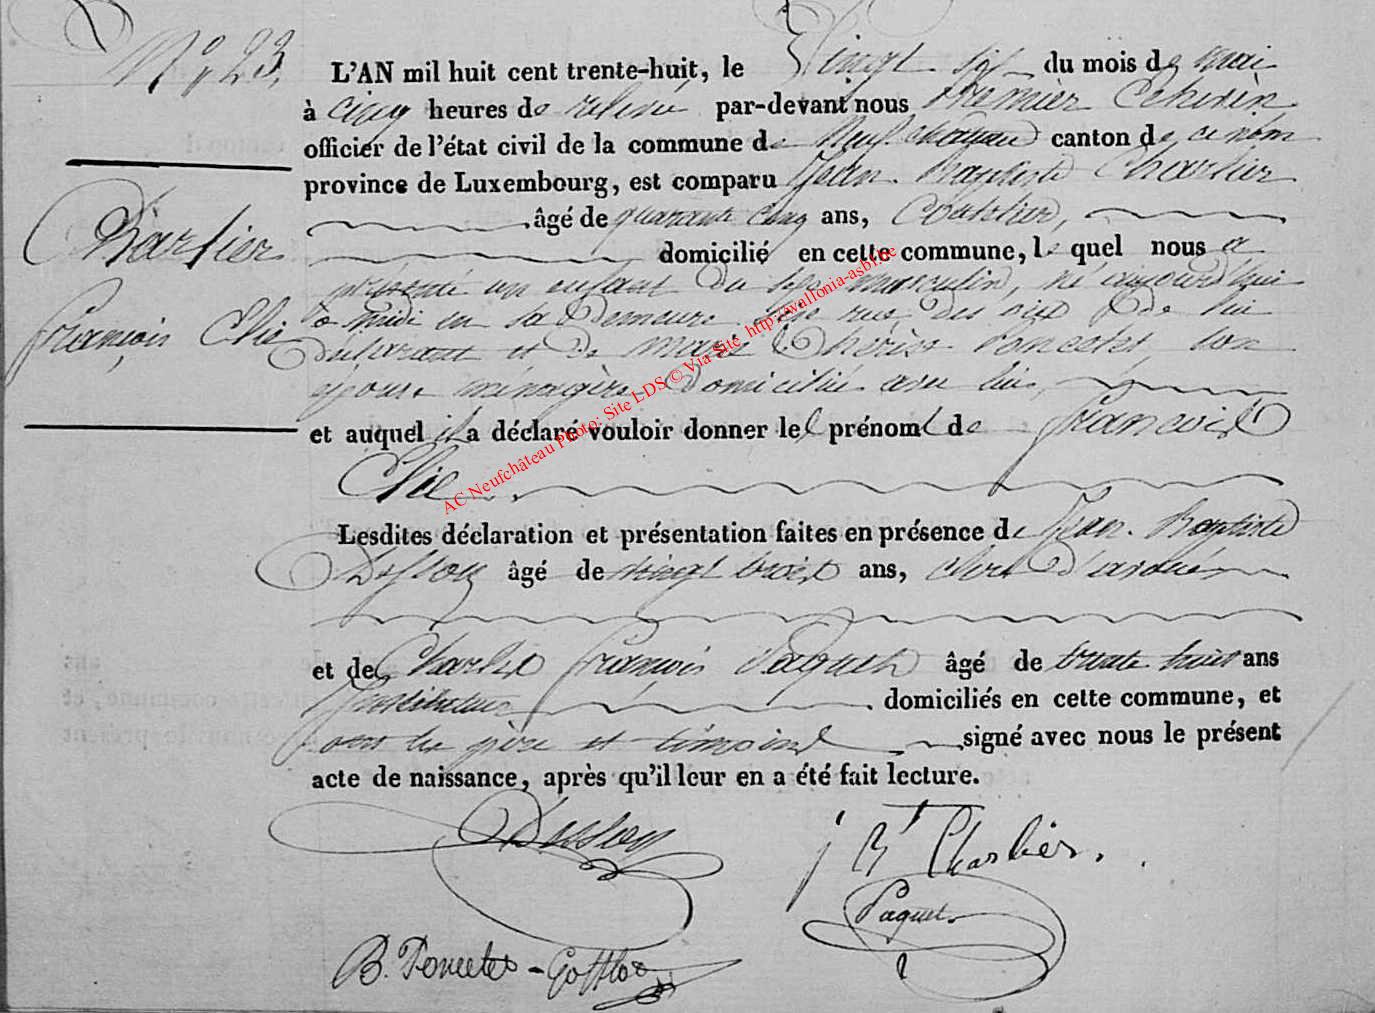 N° 23.
L'AN mil huit cent trente-huit, le Vingt six du mois de mai
à cinq heures de relevé par-devant nous Premier Echevin
officier de l'état civil de la commune de Neufchâteau canton de ce nom
province de Luxembourg, est comparu Jean Baptiste Charlier
âgé de quarante cinq ans,
domicilié en cette commune, le quel nous a
Charlier
présenté un enfant du sexe masculin, né aujourd'hui
à midi en sa demeure rue des de lui
François Elie
déclarant et de marie Thérèse Poncelet son
épouse ménagère domiciliée avec lui,
et auquel il a déclaré vouloir donner les prénoms de François
Elie.
Lesdites déclaration et présentation faites en présence de Jean-Baptiste
âgé de vingt trois ans, clerc d'avoué
et de Charles François Paquet âgé de trente huit ans
Instituteur domiciliés en cette commune, et
ont les père et témoins signé avec nous le présent
acte de naissance, après qu'il leur en a été fait lecture.
J Bt Charlier.
Paquet
B. Poncelet-Gofflot
AC Neufchâteau Photo: Site LDS © Via Site http://wallonia-asbl.be